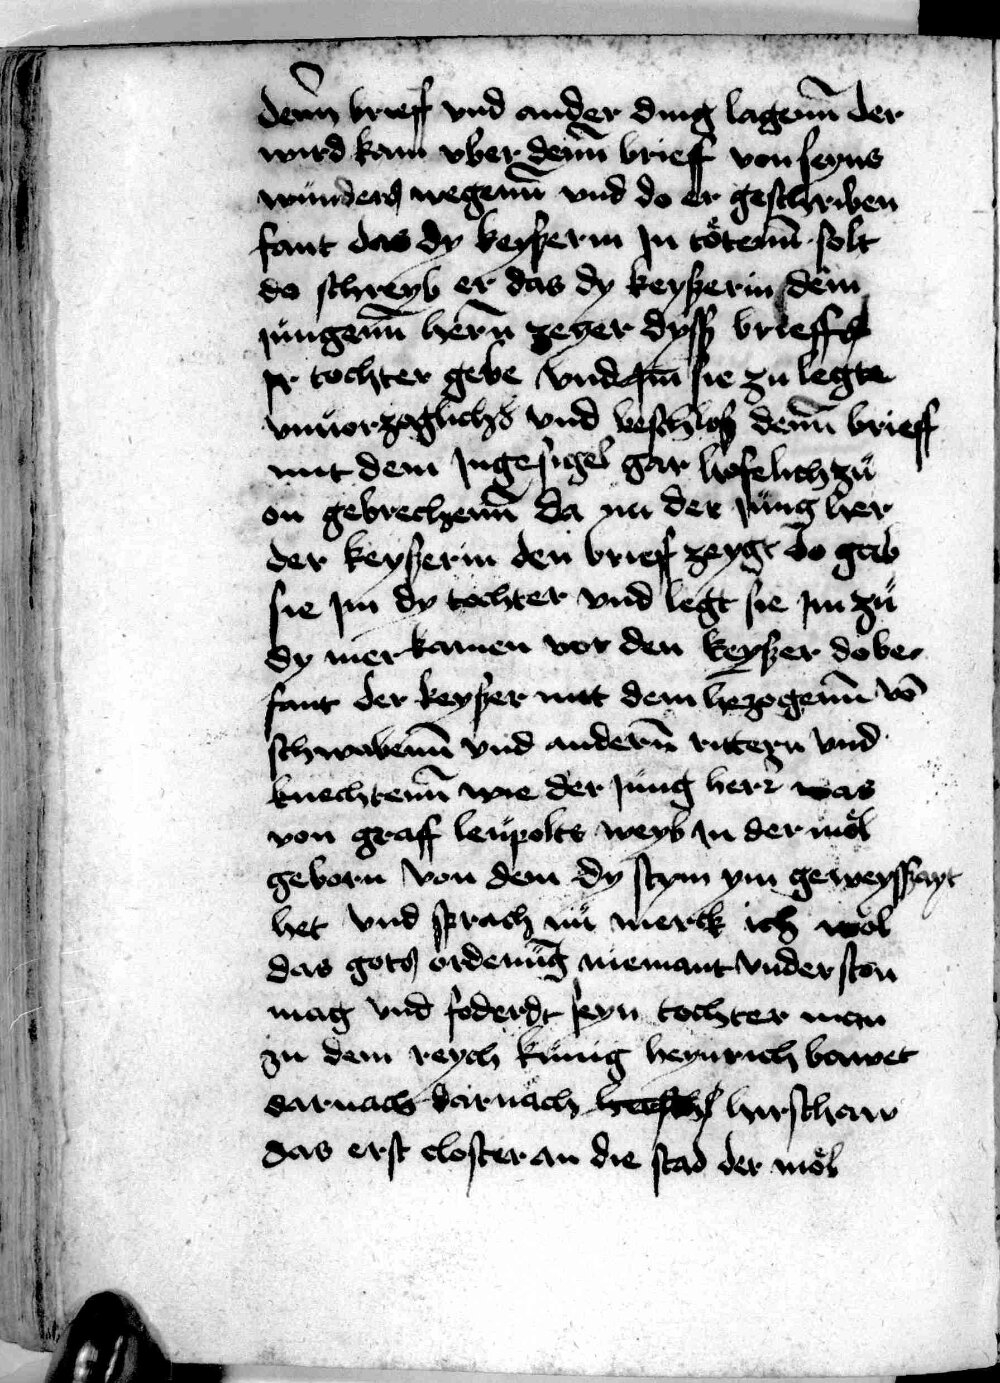 denn brieff vnd ander ding lagenn der
wird kam vber denn brieff von seyns
wunders wegenn vnd do er geschriben
fant das dy keyßerin Jn tötenn solt
do schreyb er das dy keyßerin dem
jungenn hern zeyer dyß brieffs
jr tochter gebe vnd jm sie zu legte
vnuorzoglichs vnd beschloß denn brieff
mit dem Jngesigel gar hofelich zu
on gebrechenn da nu der Jung her
der keyßerin den brieff zeygt do gab
sie Jm dy tochter vnd legt sie Jm zu
dy mer kamen vor den keyßer do be
fant der keyßer mit dem hezogenn vo
schwabenn vnd andern rittern vnd
knechtenn wie der Jung herr was
von graff leupolts weyb Jn der möl
geborn von dem dy stym ym geweyssayt
het vnd sprach nu merck ich wol
das gots ordenung niemant vndersten
mag vnd foderdt seyn tochter man
zu dem reych kunig heynrich bawet
darnach darnach hirschaw
das erst closter an die stad der möl